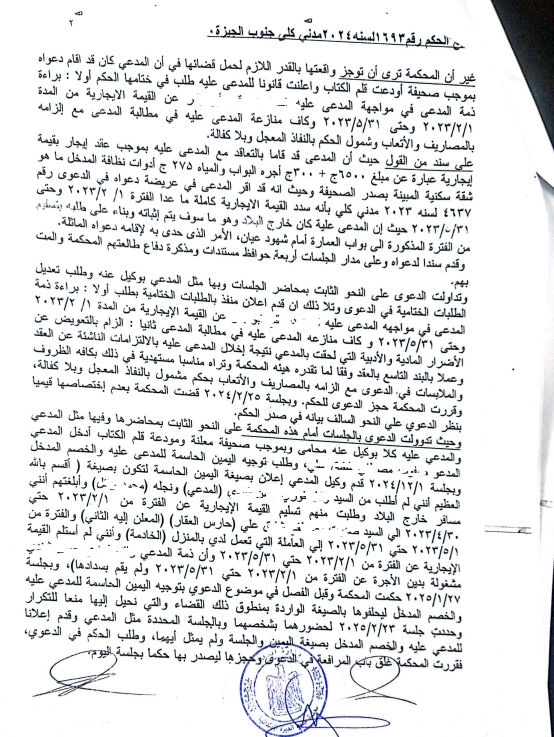 ٢
ح الحكم رقم ١٦٩٣ لسنه ٢٠٢٤ مدني كلي جنوب الجيزة.
غير أن المحكمة ترى أن توجز واقعتها بالقدر اللازم لحمل قضائها في أن المدعي كان قد اقام دعواه
بموجب صحيفة أودعت قلم الكتاب واعلنت قانونا للمدعى عليه طلب في ختامها الحكم أولا : براءة
ذمة المدعى في مواجهة المدعى عليه عن القيمة الايجارية من المدة
٢٠٢٣/٢/١ وحتى ٢٠٢٣/٥/٣١ وكاف منازعة المدعى عليه في مطالبة المدعى مع إلزامه
بالمصاريف والأتعاب وشمول الحكم بالنفاذ المعجل وبلا كفالة.
على سند من القول حيث أن المدعى قد قاما بالتعاقد مع المدعى عليه بموجب عقد إيجار بقيمة
إيجارية عبارة عن مبلغ ٦٥٠٠ج + ٣٠٠ج أجره البواب والمياه ٢٧٥ ج أدوات نظافة المدخل ما هو
شقة سكنية المبينة بصدر الصحيفة وحيث انه قد اقر المدعى في عريضة دعواه في الدعوى رقم
٤٦٣٧ لسنه ٢٠٢٣ مدني كلي بأنه سدد القيمة الايجارية كاملة ما عدا الفترة ١/ ٢٠٢٣/٢ وحتى
٢٠٢٣/-/٣١ حيث إن المدعى علية كان خارج البلاد وهو ما سوف يتم إثباته وبناء على طلبه بتسليم
من الفترة المذكورة الى بواب العمارة أمام شهود عيان، الأمر الذى حدى به لإقامه دعواه الماثلة.
وقدم سندا لدعواه وعلى مدار الجلسات أربعة حوافظ مستندات ومذكرة دفاع طالعتهم المحكمة والمت
بهم.
وتداولت الدعوى على النحو الثابت بمحاضر الجلسات وبها مثل المدعي بوكيل عنه وطلب تعديل
الطلبات الختامية في الدعوى وتلا ذلك ان قدم اعلان منفذ بالطلبات الختامية بطلب أولا : براءة ذمة
المدعى في مواجهه المدعى عليه عن القيمة الإيجارية من المدة ١/ ٢٠٢٣/٢
وحتى ٢٠٢٣/٥/٣١ و كاف منازعه المدعى عليه في مطالبة المدعى ثانيا : الزام بالتعويض عن
الأضرار المادية والأدبية التي لحقت بالمدعي نتيجة إخلال المدعى عليه بالالتزامات الناشئة عن العقد
وعملا بالبند التاسع بالعقد وفقا لما تقدره هيئه المحكمة وتراه مناسبا مستهدية في ذلك بكافه الظروف
والملابسات في الدعوى مع الزامه بالمصاريف والأتعاب بحكم مشمول بالنفاذ المعجل وبلا كفالة،
وقررت المحكمة حجز الدعوى للحكم. وبجلسة ٢٠٢٤/٢/٢٥ قضت المحكمة بعدم إختصاصها قيميا
بنظر الدعوي علي النحو السالف بيانه في صدر الحكم.
وحيث تدوولت الدعوى بالجلسات أمام هذه المحكمة على النحو الثابت بمحاضرها وفيها مثل المدعي
والمدعي عليه كلا بوكيل عنه محامى وبموجب صحيفة معلنة ومودعة قلم الكتاب أدخل المدعي
المدعو وطلب توجيه اليمين الحاسمة للمدعى عليه والخصم المدخل
وبجلسة ٢٠٢٤/١٢/١ قدم وكيل المدعي إعلان بصيغة اليمين الحاسمة لتكون بصيغة ( أقسم بالله
العظيم أنني لم أطلب من السيد (المدعي) ونجله (محمد ) وأبلغتهم أنني
مسافر خارج البلاد وطلبت منهم تسليم القيمة الإيجارية عن الفترة من ٢٠٢٣/٢/١ حتي
٢٠٢٣/٤/٣٠ الي السيد علي (حارس العقار) (المعلن إليه الثاني) والفترة من
٢٠٢٣/٥/١ حتي ٢٠٢٣/٥/٣١ إلي العاملة التي تعمل لدي بالمنزل (الخادمة) وأنني لم أستلم القيمة
الإيجارية عن الفترة من ٢٠٢٣/٢/١ حتي ٢٠٢٣/٥/٣١ وأن ذمة المدعي
مشغولة بدين الأجرة عن الفترة من ٢٠٢٣/٢/١ حتي ٢٠٢٣/٥/٣١ ولم يقم بسدادها)، وبجلسة
٢٠٢٥/١/٢٧ حكمت المحكمة وقبل الفصل في موضوع الدعوي بتوجيه اليمين الحاسمة للمدعى عليه
والخصم المدخل ليحلفوها بالصيغة الواردة بمنطوق ذلك القضاء والتي نحيل إليها منعا للتكرار
وحددت جلسة ٢٠٢٥/٢/٢٣ لحضورهما بشخصهما وبالجلسة المحددة مثل المدعي وقدم إعلانا
للمدعى عليه والخصم المدخل بصيغة اليمين والجلسة ولم يمثل أيهما، وطلب الحكم في الدعوي،
فقررت المحكمة غلق باب المرافعة في الدعوى وحجزها ليصدر بها حكما بجلسة اليوم.